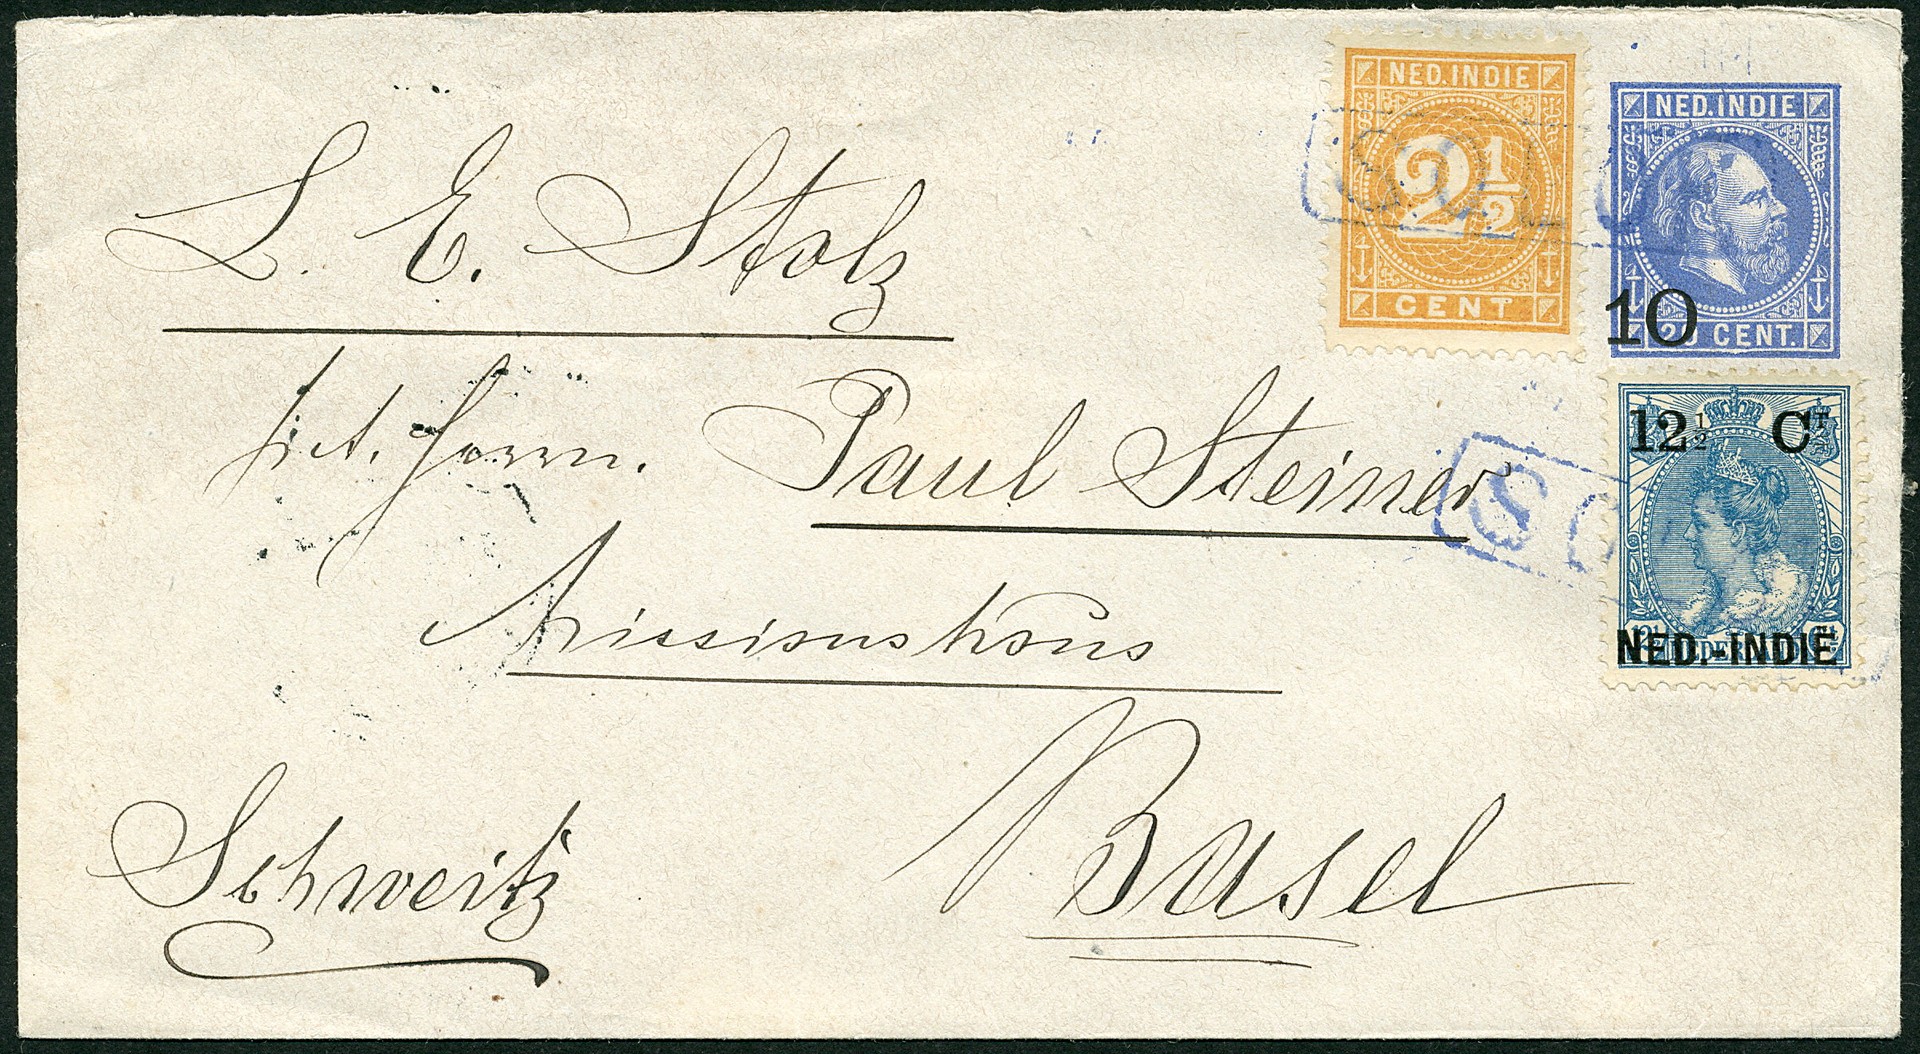 NED. INDIE
2½
CENT
NED. INDIE
10
20 CENT.
12½ CT
NED.-INDIE
SO
L. E. Stolz
Herrn. Paul Steiner
Missionshaus
Basel
Schweitz